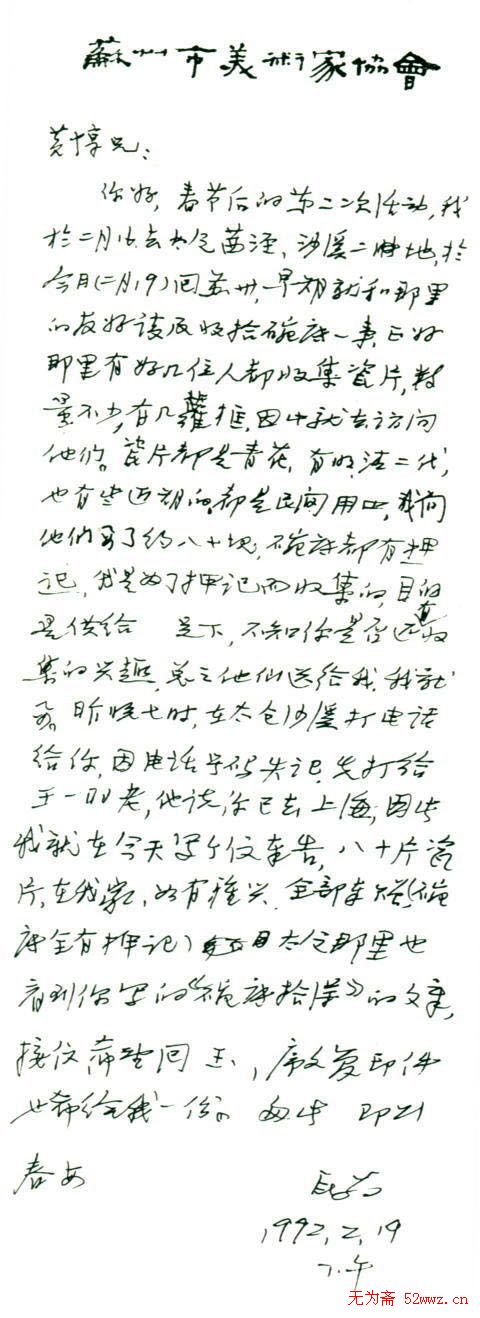 蘇州市美術家協會
黄惇兄：
你好，春节后的第二次活动，我
於二月16去太仓茜泾、沙溪二地，於
今月(二月19)回苏州，早期就和那里
的友好谈及收拾碗底一事，正好
那里有好几位人都收集瓷片，数
量不少，有几籮框，因此就去访问
他们。瓷片都是青花，有明、清二代，
也有些近期的，都是民间用皿，我向
他们要了约八十块，碗底都有押
记，我是为了押记而收集的，目的
是供给 足下，不知你是否还有收
集的兴趣，总之他们送给我，我就
要。昨晚七时，在太仓沙溪打电话
给你，因电话号码失记，先打给
老，他说你已去上海，因此
我就在今天写个信奉告，八十片瓷
片，在我家，如有雅兴，全部奉赠(碗
底全有押记) 太仓那里也
看到你写的《碗底拾准》的文章，
接信希望回 玉，序文复印件
也希给我一份。匆此 即颂
春安
1992，2，19
下午
无为斋 52wwz.cn